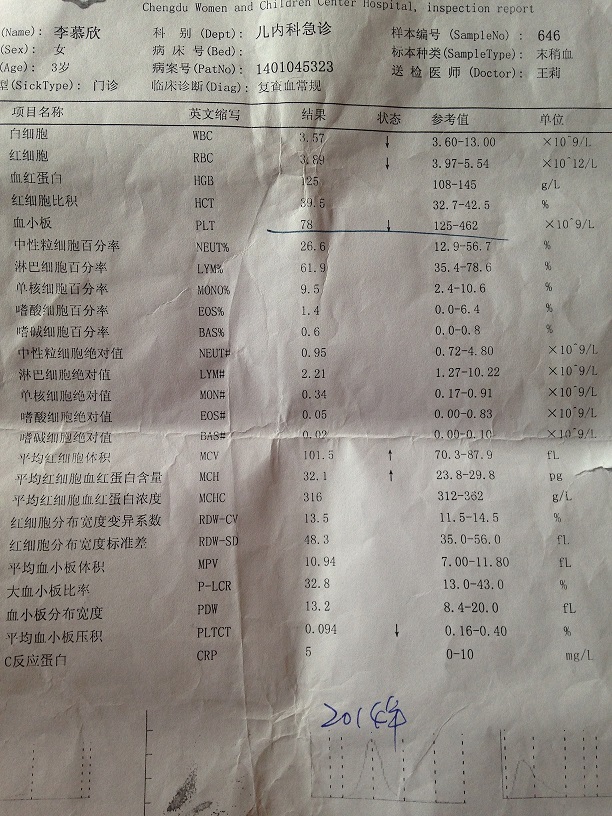 Chengdu Women and Children Center Hospital, inspection report
(Name): 李慕欣 科 别 (Dept): 儿内科急诊 样本编号 (SampleNo) : 646
(Sex): 女 病 床 号(Bed): 标本种类(SampleType): 末稍血
(Age): 3岁 病案号(PatNo): 1401045323 送 检 医 师 (Doctor): 王莉
型(SickType): 门诊 临床诊断(Diag): 复查血常规
项目名称 英文缩写 结果 状态 参考值 单位
白细胞 WBC 3.57 ↓ 3.60-13.00 ×10^9/L
红细胞 RBC 3.89 ↓ 3.97-5.54 ×10^12/L
血红蛋白 HGB 125 108-145 g/L
红细胞比积 HCT 39.5 32.7-42.5 %
血小板 PLT 78 ↓ 125-462 ×10^9/L
中性粒细胞百分率 NEUT% 26.6 12.9-56.7 %
淋巴细胞百分率 LYM% 61.9 35.4-78.6 %
单核细胞百分率 MONO% 9.5 2.4-10.6 %
嗜酸细胞百分率 EOS% 1.4 0.0-6.4 %
嗜碱细胞百分率 BAS% 0.6 0.0-0.8 %
中性粒细胞绝对值 NEUT# 0.95 0.72-4.80 ×10^9/L
淋巴细胞绝对值 LYM# 2.21 1.27-10.22 ×10^9/L
单核细胞绝对值 MON# 0.34 0.17-0.91 ×10^9/L
嗜酸细胞绝对值 EOS# 0.05 0.00-0.83 ×10^9/L
嗜碱细胞绝对值 BAS# 0.02 0.00-0.10 ×10^9/L
平均红细胞体积 MCV 101.5 ↑ 70.3-87.9 fL
平均红细胞血红蛋白含量 MCH 32.1 ↑ 23.8-29.8 pg
平均红细胞血红蛋白浓度 MCHC 316 312-362 g/L
红细胞分布宽度变异系数 RDW-CV 13.5 11.5-14.5 %
红细胞分布宽度标准差 RDW-SD 48.3 35.0-56.0 fL
平均血小板体积 MPV 10.94 7.00-11.80 fL
大血小板比率 P-LCR 32.8 13.0-43.0 %
血小板分布宽度 PDW 13.2 8.4-20.0 fL
平均血小板压积 PLTCT 0.094 ↓ 0.16-0.40 %
C反应蛋白 CRP 5 0-10 mg/L
2014年